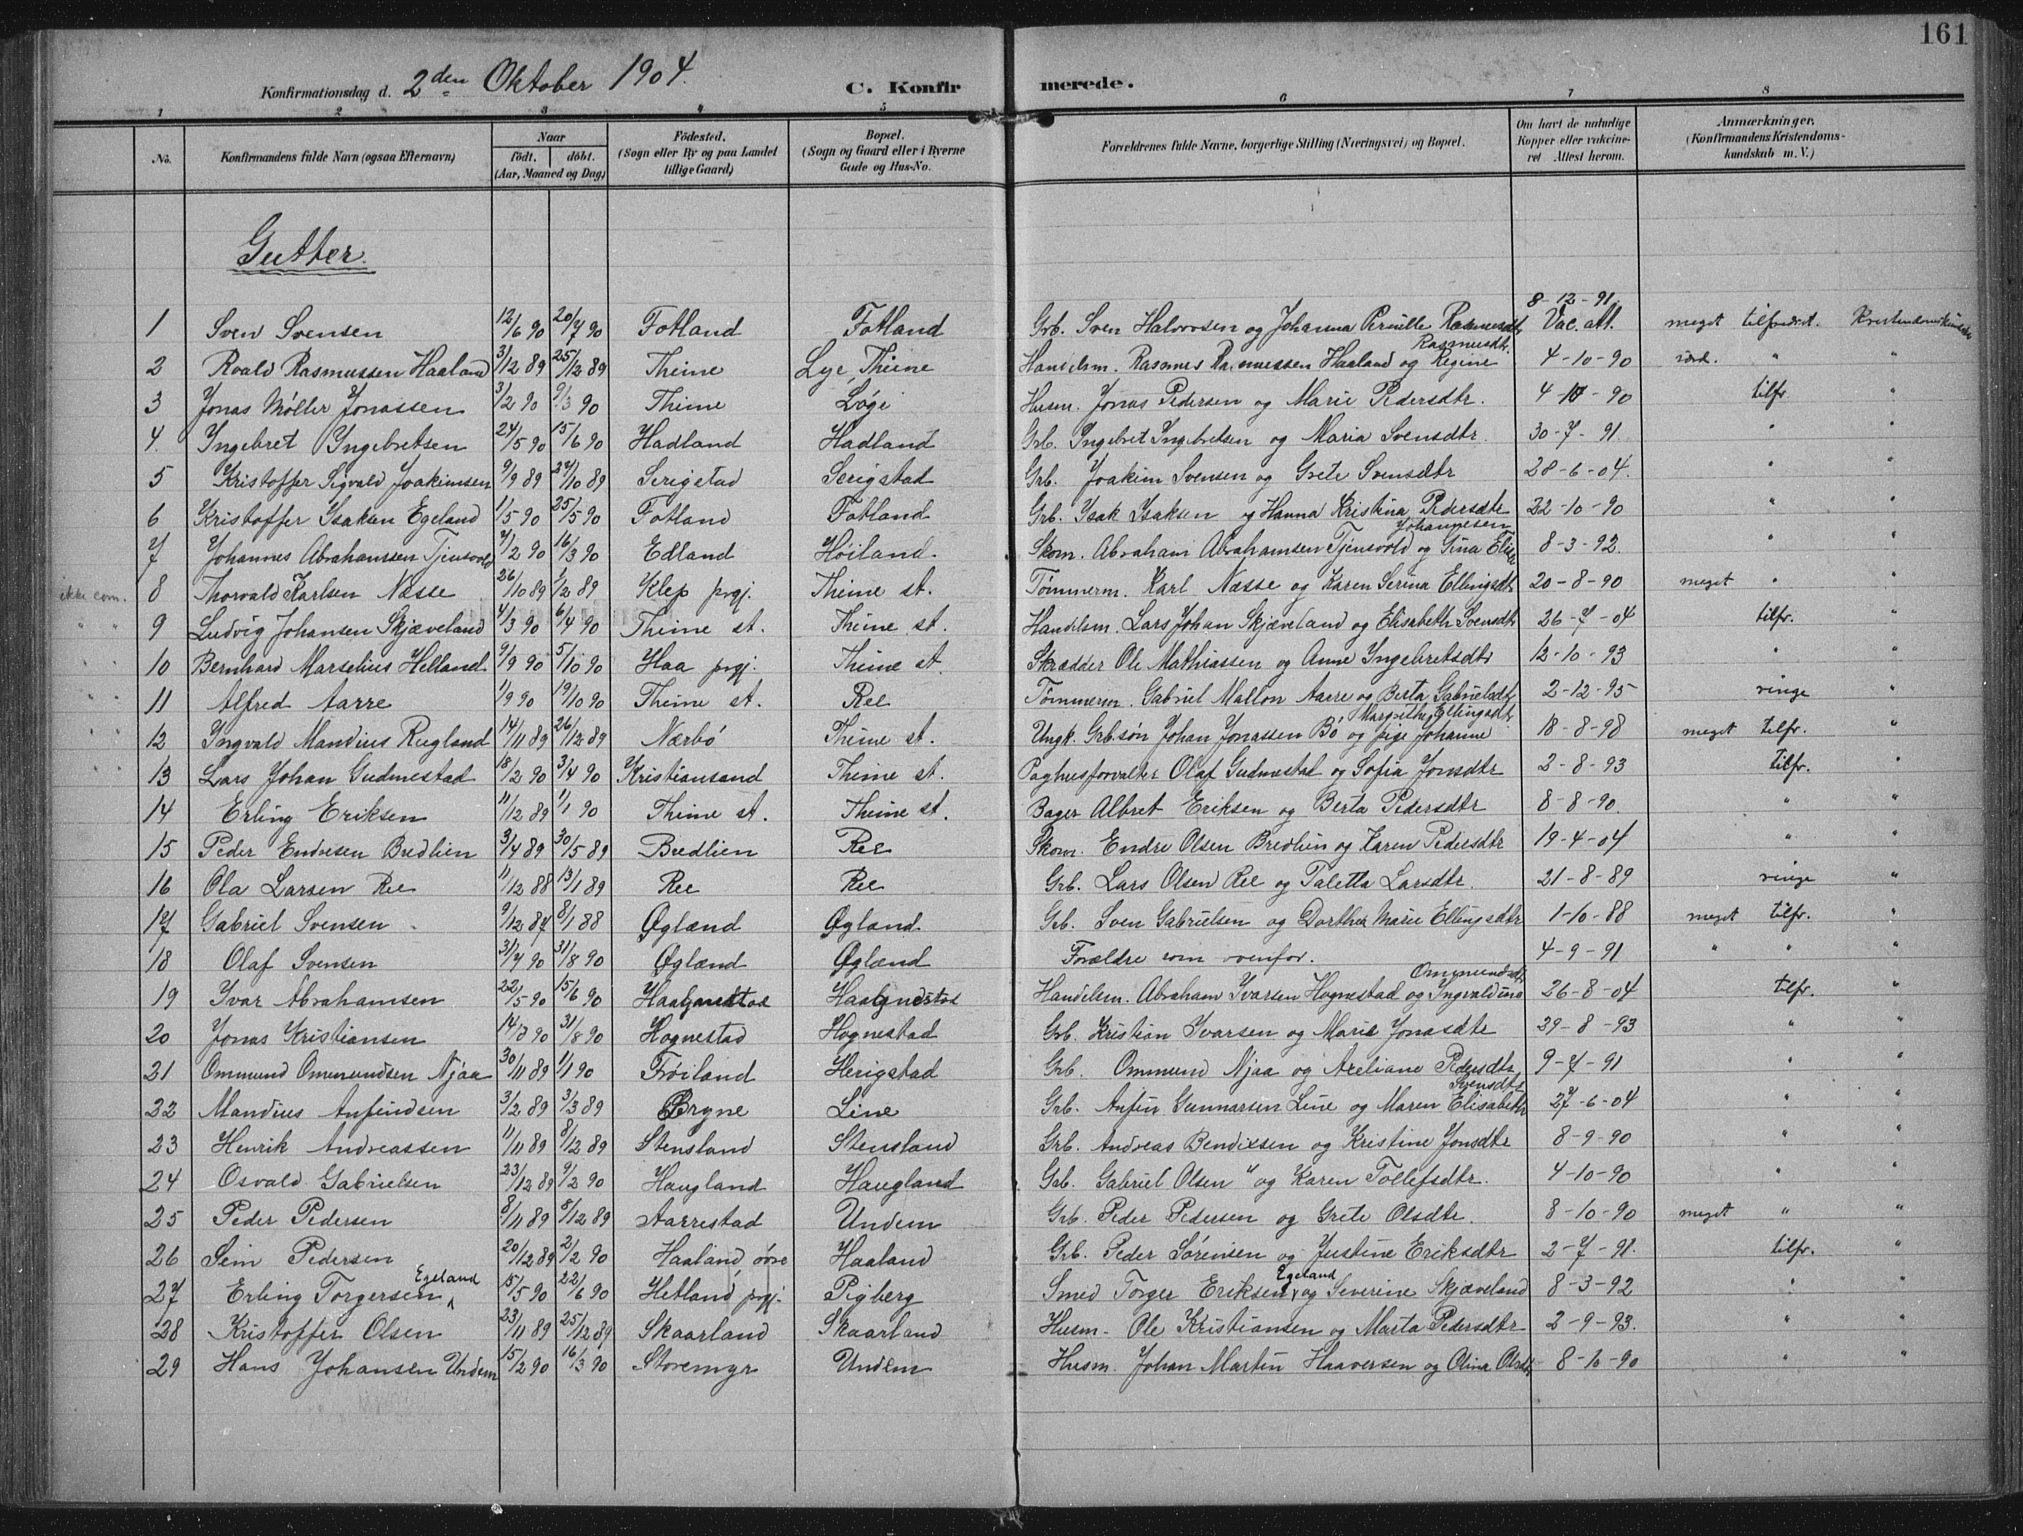 161
Konfirmationsdag d. 2den Oktober 1904 C. Konfirmerede.
1 2 3 4 5 6 7 8
No. Konfirmandens fulde Navn (ogsaa Efternavn) Naar født. døbt. (Aar, Maaned og Dag) Fødested. (Sogn eller By og paa Landet tillige Gaard) Bopæl. (Sogn og Gaard eller i Byerne Gade og Hus-No. Forældrenes fulde Navne, borgerlige Stilling (Næringsvei) og Bopæl. Om havt de naturlige Kopper eller vakcineret Attest herom. Anmærkninger. (Konfirmandens Kristendomskundskab m. V.)
Gutter.
1 Sven Svensen 12/6 90 20/7 90 Fotland Fotland Grb. Sven Halvorsen og Johanna Pernille Rasmusdtr 8-12-91. Vac. att. meget tilfredsst. Kristendomskundsk
2 Roald Rasmussen Haaland 3/12 89 25/12 89 Thime Lye, Thime Handelsm. Rasmus Rasmussen Haaland og Regine Rasmusdtr. 4-10-90 "
3 Jonas Møller Jonassen 3/2 90 9/3 90 Thime Løge Husm. Jonas Pedersen og Marie Pedersdtr. 4-10-90 tilfr. "
4. Ingebret Ingebretsen 24/5 90 15/6 90 Hadland Hadland Grb. Ingebret Ingebretsen og Maria Svensdtr. 30-7-91 " "
5 Kristoffer Sigvald Joakimsen 9/9 89 27/10 89 Serigstad Serigstad Grb. Joakim Svensen og Grete Svensdtr 28-6-04. " "
6 Kristoffer Isaksen Egeland 1/5 90 25/5 90 Fotland Fotland Grb. Isak Isaksen og Hanna Kristina Pedersdtr 22-10-90 " "
7 Johannes Abrahamsen Tjensvold 7/2 90 16/3 90 Edland Høiland. Skom. Abraham Abrahamsen Tjensvold og Gina Elise Johannesen 8-3-92. " "
ikke com. 8 Thorvald Karlsen Næsse 26/10 89 1/12 89 Klep prgj. Thime st. Tømmerm. Karl Næsse og Karen Serina Ellingsdtr 20-8-90 meget " "
" " 9 Ludvig Johansen Skjæveland 4/3 90 6/4 90 Thime st. Thime st. Handelsm. Lars Johan Skjæveland og Elisabeth Svensdtr 26-7-04 tilfr. "
" " 10 Bernhard Marselius Helland 9/9 90 5/10 90 Haa prgj. Thime st. Skrædder Ole Mathiassen og Anne Ingebretsdtr 12-10-93 " "
" " 11 Alfred Aarre 1/9 90 19/10 90 Thime st. Ree Tømmerm. Gabriel Mallon Aarre og Berta Gabrielsdtr 2-12-95 ringe "
" " 12 Ingvald Mandius Rugland 14/11 89 26/12 89 Nærbø Thime st. Ungk. Grb.søn Johan Jonassen Bø og pige Johanne Margrethe Ellingsdtr 18-8-98 meget tilfr. "
13 Lars Johan Gudmestad 18/2 90 3/4 90 Kristiansand Thime st. Paghusforvalter Olaf Gudmestad og Sofia Jonsdtr 2-8-93 tilfr. "
14 Erling Eriksen 11/12 89 1/1 90 Thime st. Thime st. Bager Albret Eriksen og Berta Pedersdtr 8-8-90. " "
15 Peder Endresen Bredlien 3/4 89 30/5 89 Bredlien Ree Skom. Endre Olsen Bredlien og Karen Pedersdtr 19-4-04 " "
16 Ola Larsen Ree 11/12 88 13/1 89 Ree Ree Grb. Lars Olsen Ree og Taletta Larsdtr. 21-8-89 ringe "
17 Gabriel Svensen 9/12 87 8/1 88 Øgland Øgland Grb. Sven Gabrielsen og Dorthea Marie Ellingsdtr 1-10-88 meget tilfr. "
18 Olaf Svensen 31/7 90 31/8 90 Øgland Øgland Forældre som ovenfor. 4-9-91 " " "
19 Ivar Abrahamsen 22/5 90 15/6 90 Handelsm. Abraham Ivarsen Hognestad og Ommundsdtr 26-8-04 tilfr. "
20 Jonas Kristiansen 31/8 90 Hognestad Hognestad Grb. Kristian Ivarsen og Marie Jonasdtr 29-8-93 " "
21 Ommund Ommundsen Njaa 30/11 89 1/1 90 Frøiland Herigstad Grb. Ommund Njaa og Axeliane Pedersdtr 9-7-91 " "
22 Mandius Anfindsen 3/2 89 3/3 89 Bryne Line Grb. Anfin Gunnarsen Line og Maren Elisabeth Svensdtr 27-6-04 " "
23 Henrik Andreassen 11/11 89 8/12 89 Stensland Stensland Grb. Andreas Bendixsen og Kristine Jonsdtr 8-9-90 " "
24 Osvald Gabrielsen 23/12 89 9/2 90 Haugland Haugland Grb. Gabriel Olsen " og Karen Tollefsdtr. 4-10-90 " "
25 Peder Pedersen 8/11 89 8/12 89 Aarrestad Undem Grb. Peder Pedersen og Grete Olsdtr. 8-10-90 meget " "
26 Sem Pedersen 20/12 89 2/2 90 Haaland, øvre Haaland Grb. Peder Sørensen og Justine Eriksdtr 2-7-91. tilfr. "
27 Erling Torgersen Egeland 15/5 90 22/6 90 Hetland prgj. Pigberg Smed Torger Eriksen Egeland og Severine Skjæveland 8-3-92 " "
28 Kristoffer Olsen 23/11 89 25/12 89 Skaarland Skaarland Husm. Ole Kristiansen og Marta Pedersdtr 2-9-93. " "
29 Hans Johansen Undem 15/2 90 16/3 90 Storemyr Undem Husm. Johan Martin Haaversen og Olina Olsdtr 8-10-90 " "